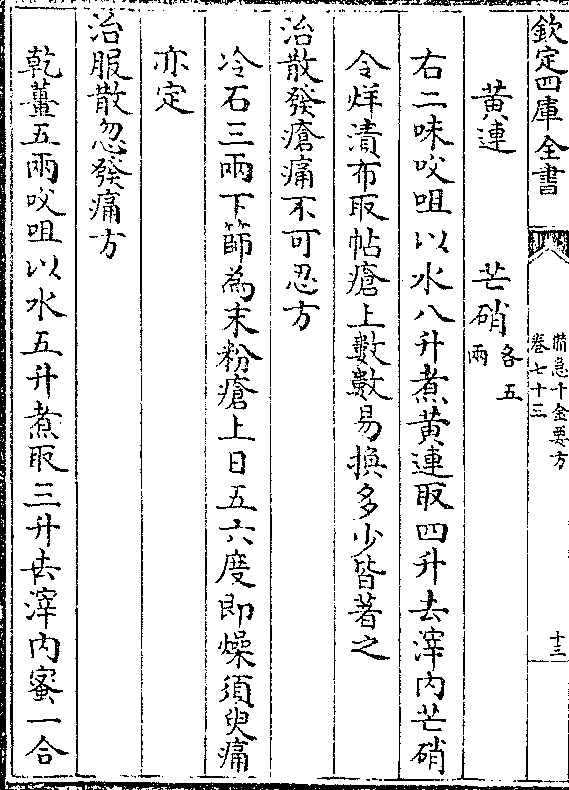 欽定四庫全書
備急千金要方
卷七十三
十三
黃連 芒硝各五兩
右二味㕮咀以水八升煮黃連取四升去滓内芒硝
令烊漬布取帖瘡上數數易換多少皆著之
治散發瘡痛不可忍方
冷石三兩下篩為末粉瘡上日五六度即燥須臾痛
亦定
治服散忽發痛方
乾薑五兩㕮咀以水五升煮取三升去滓内蜜一合